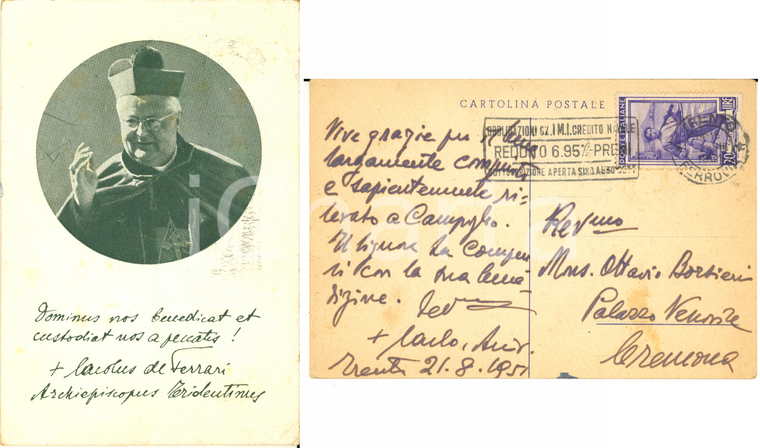 Dominus nos benedicat et
custodiat nos a peccatis !
+ Carolus de Ferrari
Archiepiscopus Tridentinus
CARTOLINA POSTALE
OBBLIGAZIONI I.M.I. CREDITO
REDDITO 6.95%
SOTTOSCRIZIONE APERTA SINO
POSTE ITALIANE
TRENTO
FERROVIA
Vive grazie per il bene
largamente compiuto
e sapientemente ri-
levato a Campiglio.
Il Signore La compen
si con la sua bene
dizione.
Dev
+ Carlo, Arciv.
Trento 21.8.1951
Rev.mo
Mons. Ottavio Barbieri
Palazzo Vescovile
Cremona